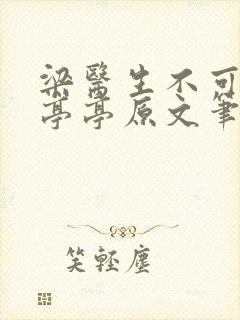 梁醫生不可
亭亭原文筆
笑輕塵